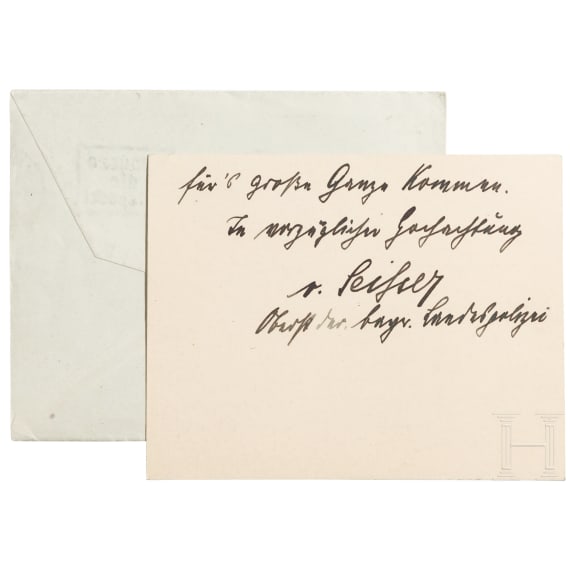 für's große Ganze kommen.
In vorzüglicher Hochachtung
v. Seißer
Oberst der bayr. Landespolizei